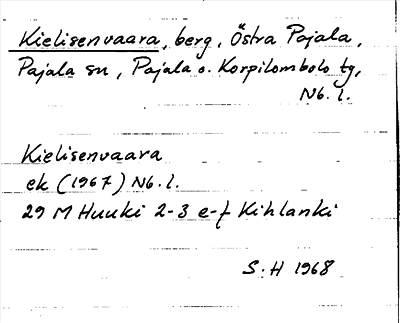 Kielisenvaara, berg, Östra Pajala,
Pajala sn, Pajala o. Korpilombolo tg,
Nb. l.
Kielisenvaara
ek (1967) Nb. l.
29 M Huuki 2-3 e-f Kihlanki
S:H 1968